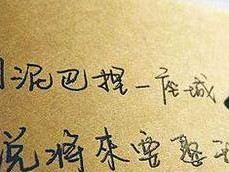 泥巴捏一座城
说将来要娶